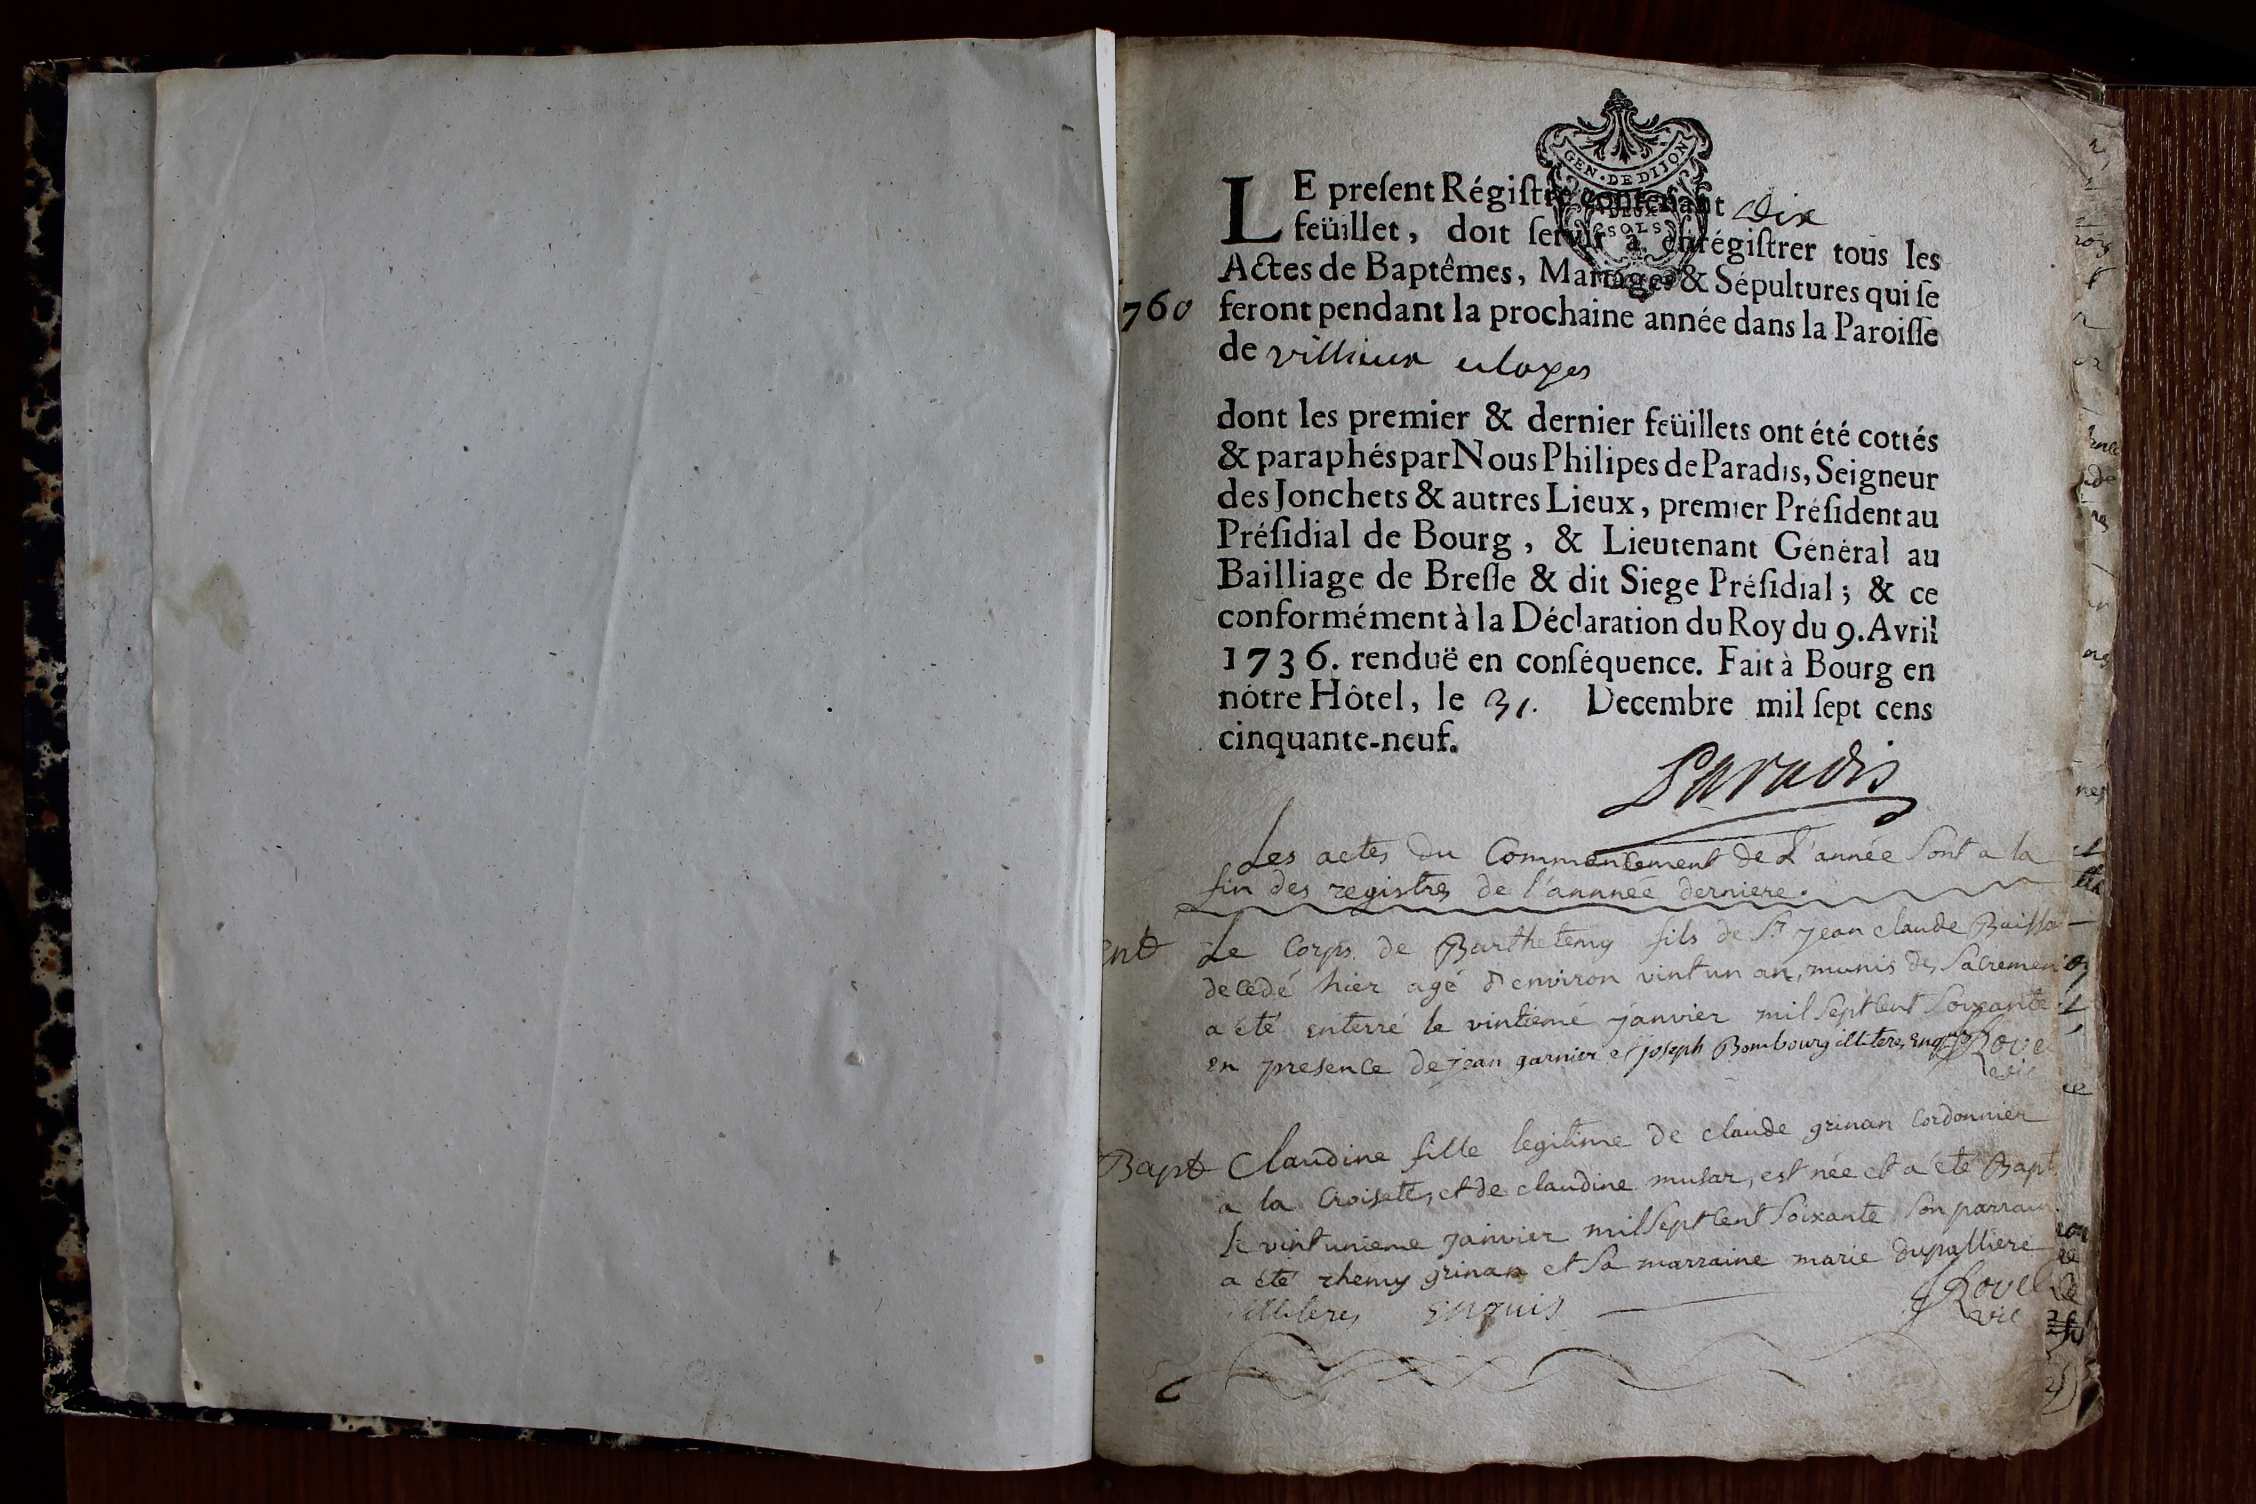 GEN·DE DIJON
DEUX
SOLS
LE preſent Régiſtre contenant dix
feüillet, doit ſervir à enrégiſtrer tous les
Actes de Baptêmes, Mariages & Sépultures qui ſe
760 feront pendant la prochaine année dans la Paroiſſe
de villieux et loyes
dont les premier & dernier feüillets ont été cottés
& paraphés par Nous Philipes de Paradis, Seigneur
des Jonchets & autres Lieux, premier Préſident au
Préſidial de Bourg, & Lieutenant Général au
Bailliage de Breſſe & dit Siege Préſidial; & ce
conformément à la Déclaration du Roy du 9. Avril
1736. renduë en conſéquence. Fait à Bourg en
nótre Hôtel, le 31. Decembre mil ſept cens
cinquante-neuf.
Paradis
Les actes du Commencement de L'année sont a la
fin des registres de l'annnée derniere.
ent Le Corps de Barthelemy fils de Sr jean claude
decedé hier agé d'environ vint un an, munis des Sacremen
a été enterré le vintiémé janvier mil Sept Cent Soixante
en presence de jean garnier et joseph Bombourg illiteres Enquis
Bapt Claudine fille legitime de claude grinan Cordonnier
a la Croisette, et de claudine mutar, est née et a été Bapt
le vint unieme janvier mil Sept Cent Soixante Son parrain
a été rhemy grinan et Sa marraine marie dupalliere
illiteres Enquis